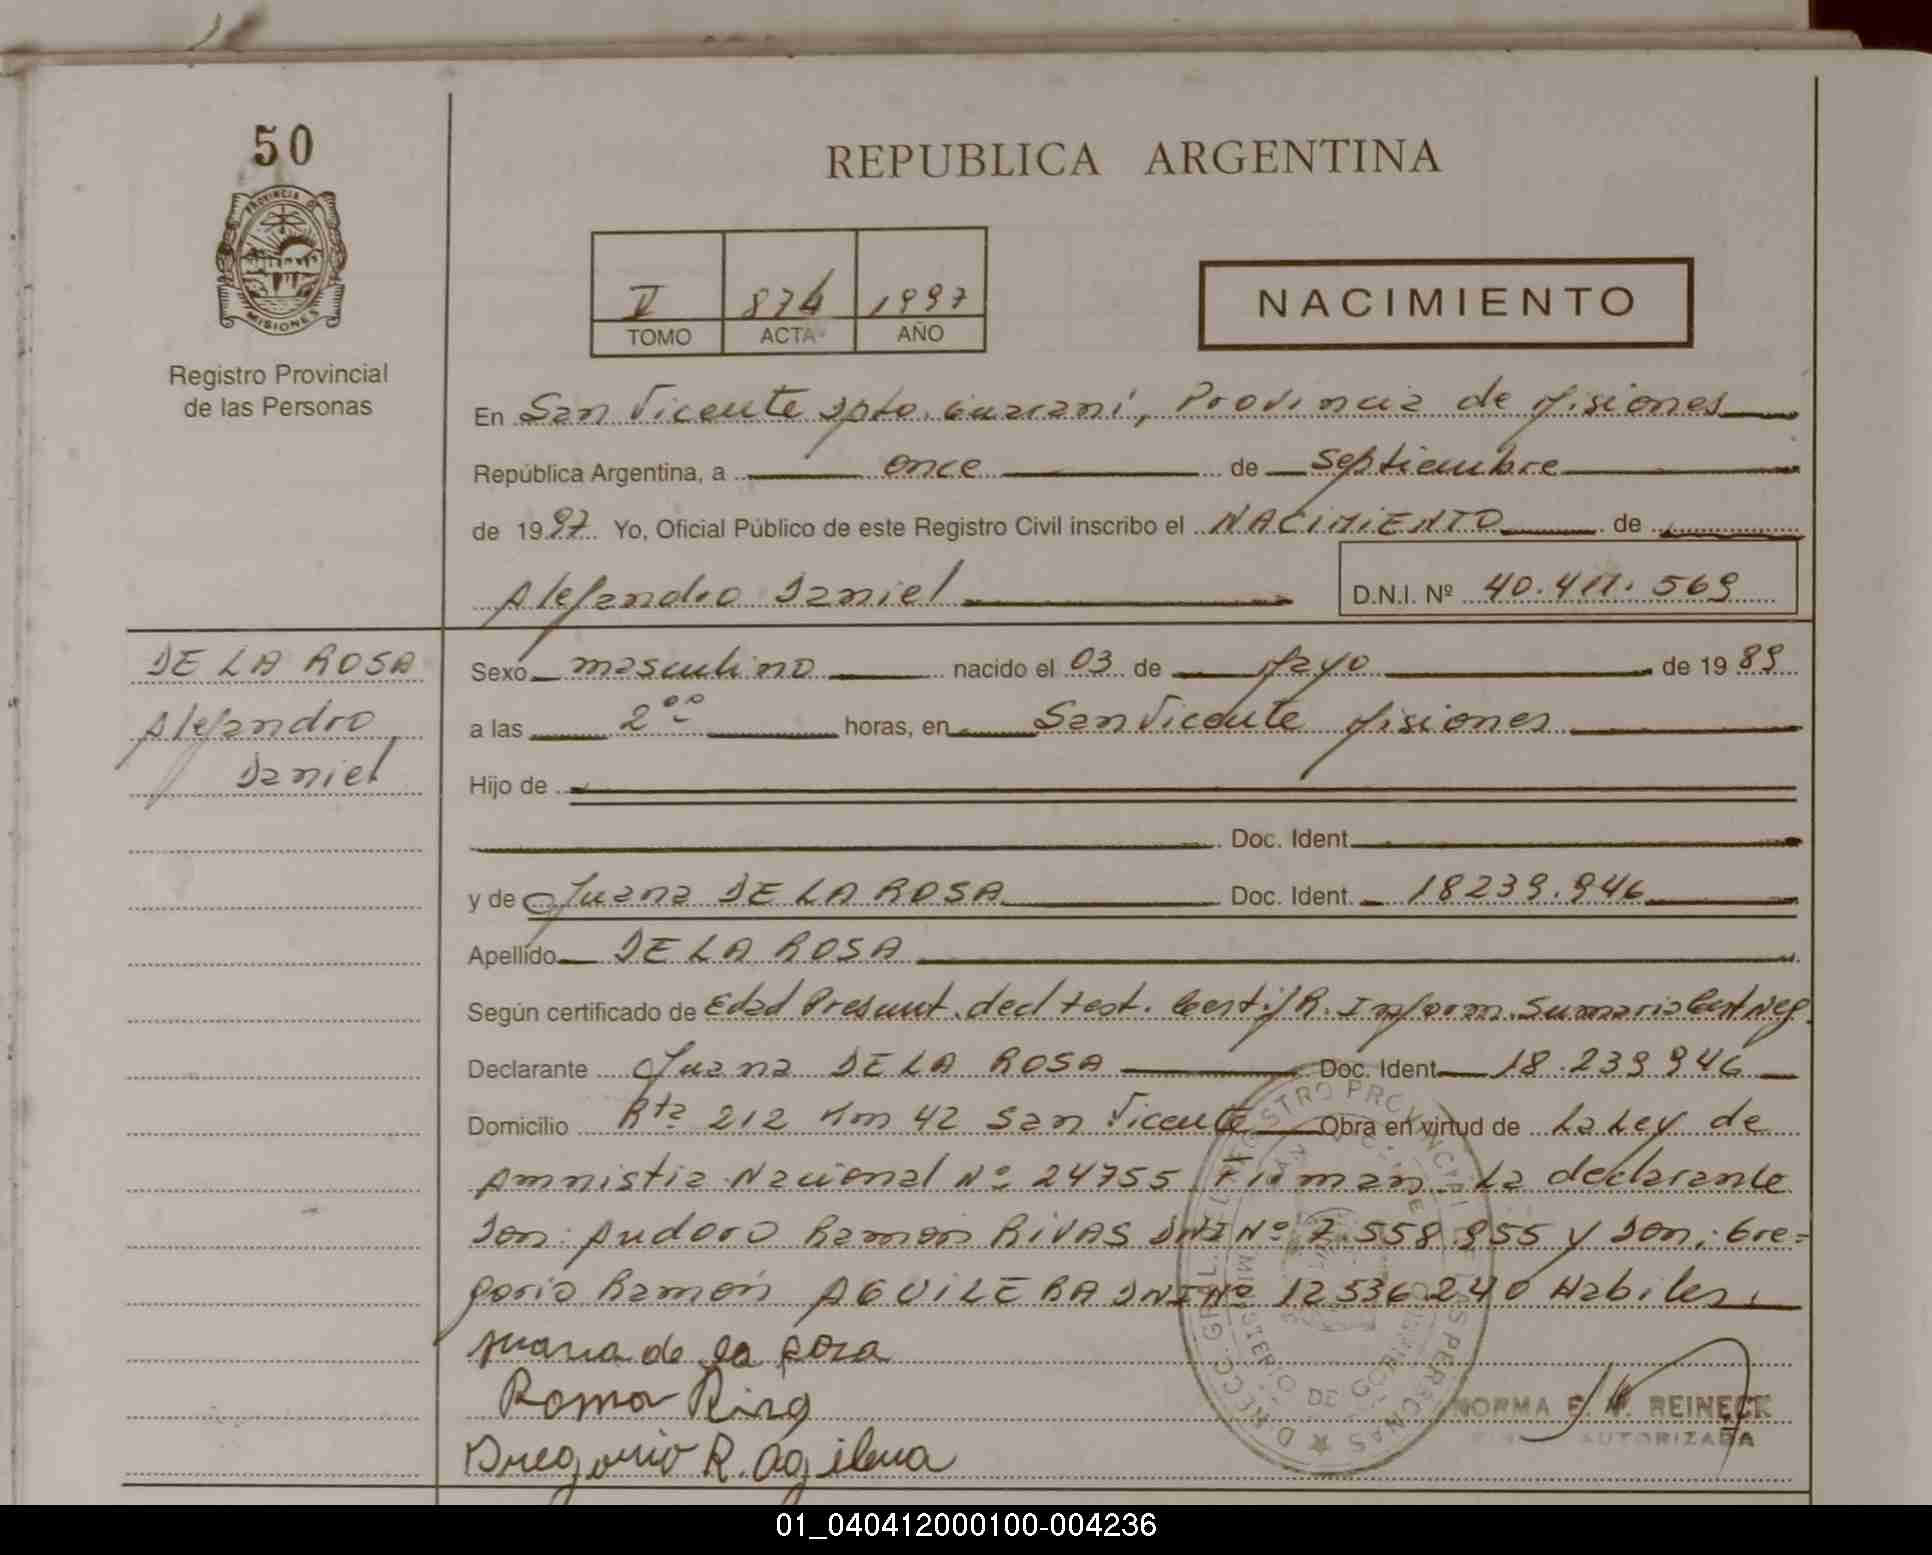 50
PROVINCIA D
MISIONES
Registro Provincial
de las Personas
REPUBLICA ARGENTINA
V 874 1997
TOMO ACTA AÑO
NACIMIENTO
En San Vicente Dpto. Guaraní, Provincia de Misiones
República Argentina, a once de Septiembre
de 1997 Yo, Oficial Público de este Registro Civil inscribo el NACIMIENTO de
Alejandro Daniel D.N.I. Nº 40.411.569
DE LA ROSA
Alejandro
Daniel
Sexo masculino nacido el 03 de Mayo de 1989
a las 2 00 horas, en San Vicente Misiones
Hijo de
Doc. Ident.
y de Juana DE LA ROSA Doc. Ident. 18239.946
Apellido DE LA ROSA
Según certificado de Edad Presunt. decl test. Certif R. Inform. Sumaria Cert Neg.
Declarante Juana DE LA ROSA Doc. Ident. 18.239946
Domicilio Rta 212 Km 42 San Vicente Obra en virtud de La Ley de
Amnistia Nacional Nº 24755 Firman La declarante
Don: Audoro Ramón RIVAS DNI Nº 7.558.955 y Don: Gre=
gorio Ramón AGUILERA DNI Nº 12536240 Habiles.
Juana de la Roza
Gregorio R. Agilera
NORMA E. REINECK
AUTORIZADA
01_040412000100-004236